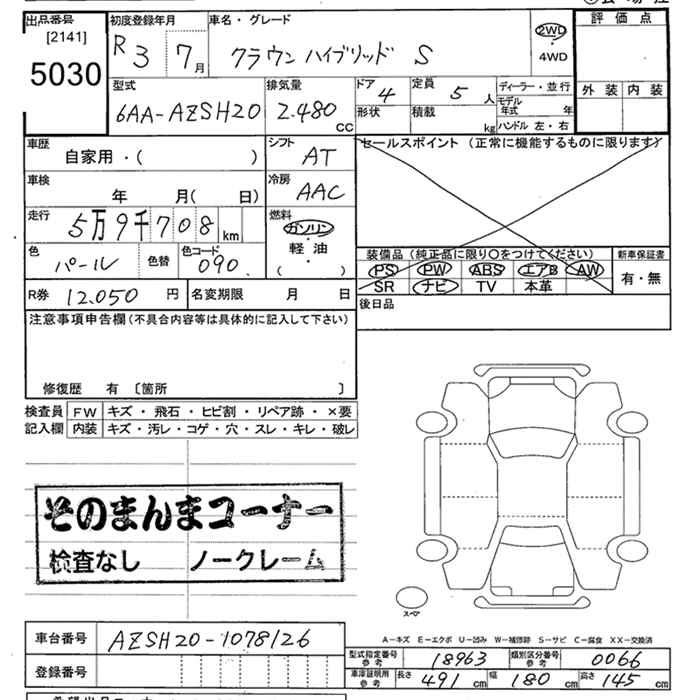 出品番号
[2141]
5030
初度登録年月
R3 7月
車名・グレード
クラウン ハイブリッド S
2WD
4WD
評価点
外装 内装
型式
6AA-AZSH20
排気量
2.480 CC
ドア
4
形状
定員
5 人
積載
kg
ディーラー・並行
モデル年式 年
ハンドル 左・右
車歴
自家用・( )
シフト
AT
セールスポイント (正常に機能するものに限ります)
車検
年 月( 日)
冷房
AAC
走行
5万9千708km
燃料
ガソリン
軽・油
( )
色
パール
色替
色コード
090
装備品(純正品に限り○をつけてください)
PS PW ABS エアB AW
SR ナビ TV 本革
新車保証書
有・無
R券 12.050 円
名変期限 月 日
後日品
注意事項申告欄(不具合内容等は具体的に記入して下さい)
修復歴 有 〔箇所 〕
検査員記入欄
FW キズ・飛石・ヒビ割・リペア跡・×要
内装 キズ・汚レ・コゲ・穴・スレ・キレ・破レ
そのまんまコーナー
検査なし ノークレーム
スペア
A－キズ E－エクボ U－凹み W－補修跡 S－サビ C－腐食 XX－交換済
車台番号 AZSH20-1078126
登録番号
型式指定番号参考 18963
類別区分番号参考 0066
車庫証明用参考 長さ 491cm 幅 180cm 高さ 145cm